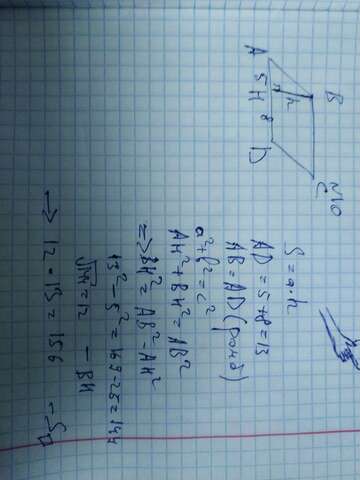 №10
B
C
A 5 H 8 D
h
S = a · h
AD = 5+8 = 13
AB = AD (ромб)
a² + b² = c²
AH² + BH² = AB²
=> BH² = AB² - AH²
13² - 5² = 169 - 25 = 144
√144 = 12 - BH
12 · 13 = 156 - S